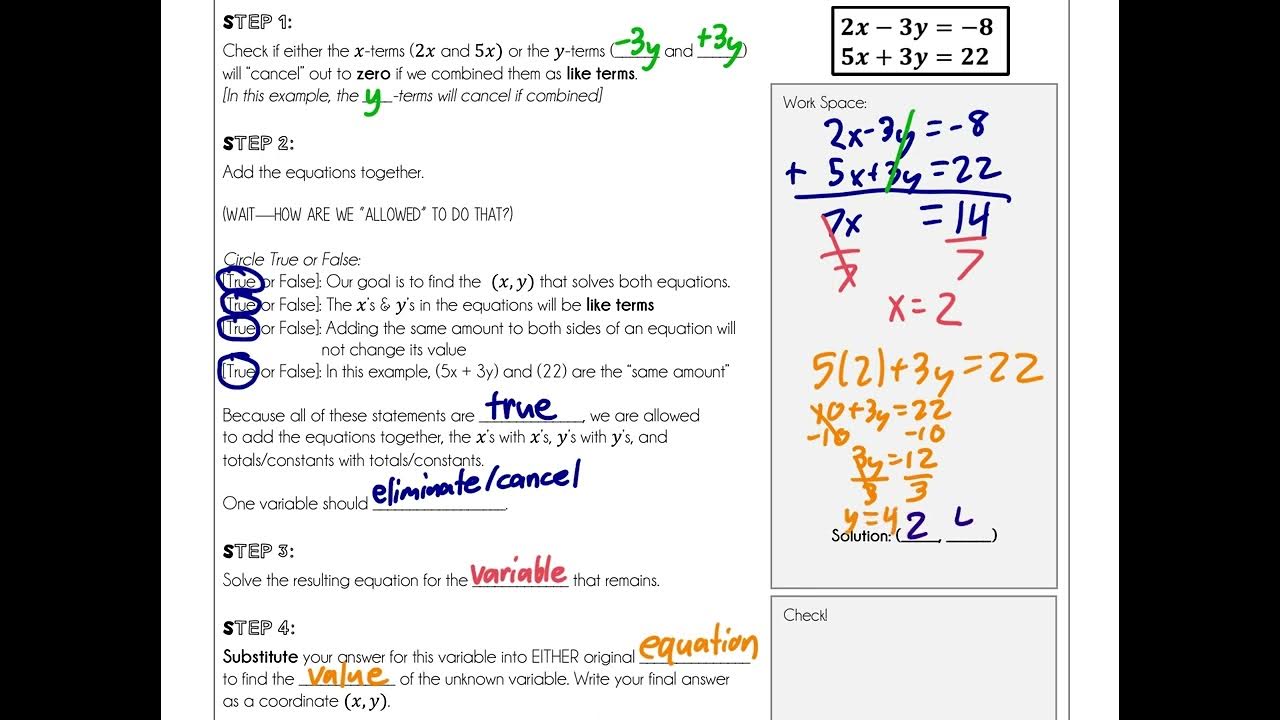 STEP 1:
Check if either the x-terms (2x and 5x) or the y-terms (-3y and +3y)
will "cancel" out to zero if we combined them as like terms.
[In this example, the y-terms will cancel if combined]
STEP 2:
Add the equations together.
(WAIT—HOW ARE WE "ALLOWED" TO DO THAT?)
Circle True or False:
[True or False]: Our goal is to find the (x, y) that solves both equations.
[True or False]: The x's & y's in the equations will be like terms
[True or False]: Adding the same amount to both sides of an equation will
not change its value
[True or False]: In this example, (5x + 3y) and (22) are the "same amount"
Because all of these statements are true, we are allowed
to add the equations together, the x's with x's, y's with y's, and
totals/constants with totals/constants.
One variable should eliminate/cancel.
STEP 3:
Solve the resulting equation for the variable that remains.
STEP 4:
Substitute your answer for this variable into EITHER original equation
to find the value of the unknown variable. Write your final answer
as a coordinate (x, y).
2x − 3y = −8
5x + 3y = 22
Work Space:
2x-3y=-8
+ 5x+3y=22
7x =14
7 7
x=2
5(2)+3y=22
10+3y=22
-10 -10
3y=12
3 3
y=4
Solution: (2, 4)
Check!